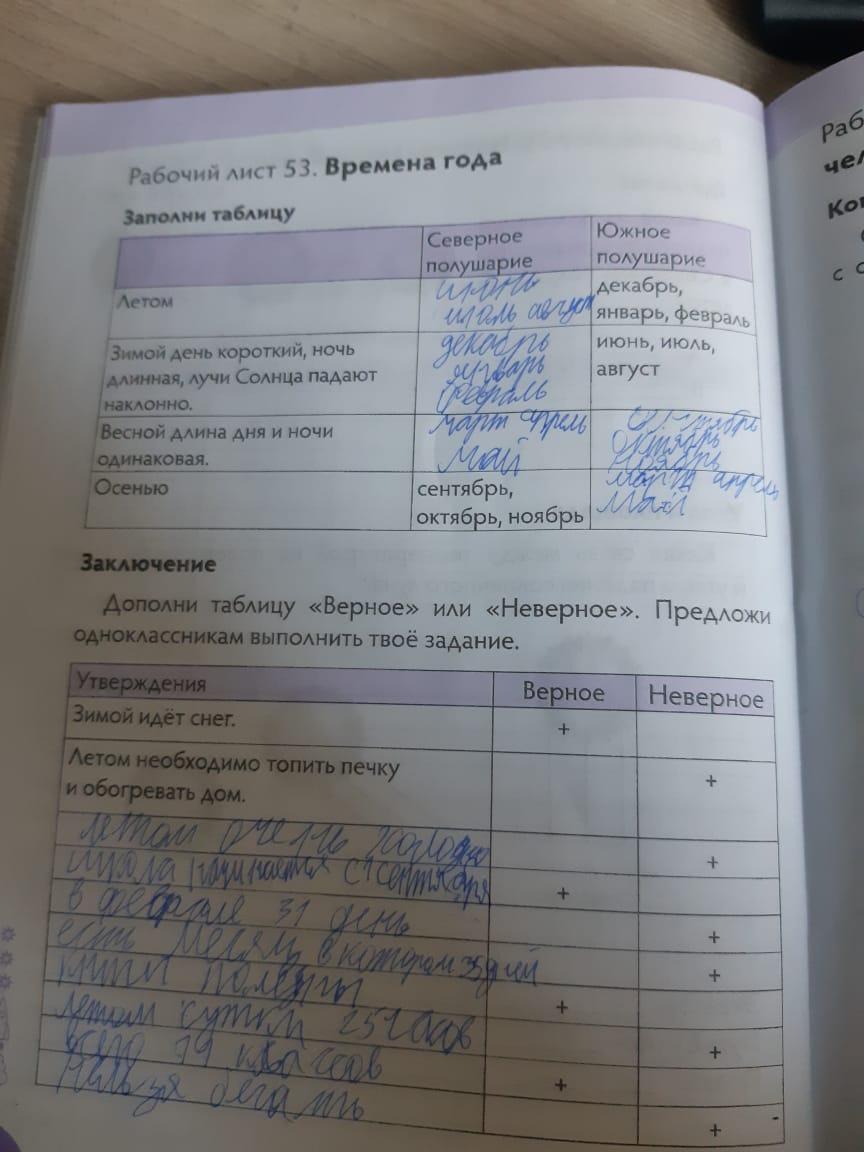 Рабочий лист 53. Времена года
Заполни таблицу
Северное полушарие
Южное полушарие
Летом
июнь
июль август
декабрь,
январь, февраль
Зимой день короткий, ночь
длинная, лучи Солнца падают
наклонно.
декабрь
январь
февраль
июнь, июль,
август
Весной длина дня и ночи
одинаковая.
март апрель
май
сентябрь
октябрь
ноябрь
Осенью
сентябрь,
октябрь, ноябрь
март апрель
май
Заключение
Дополни таблицу «Верное» или «Неверное». Предложи
одноклассникам выполнить твоё задание.
Утверждения Верное Неверное
Зимой идёт снег. +
Летом необходимо топить печку
и обогревать дом. +
летом очень холодно +
школа начинается с 1 сентября +
в феврале 31 день +
есть месяц в котором 35 дней +
книги полезны +
летом сутки 25 часов +
классов +
нельзя бегать +
Раб
чел
Ко
с с